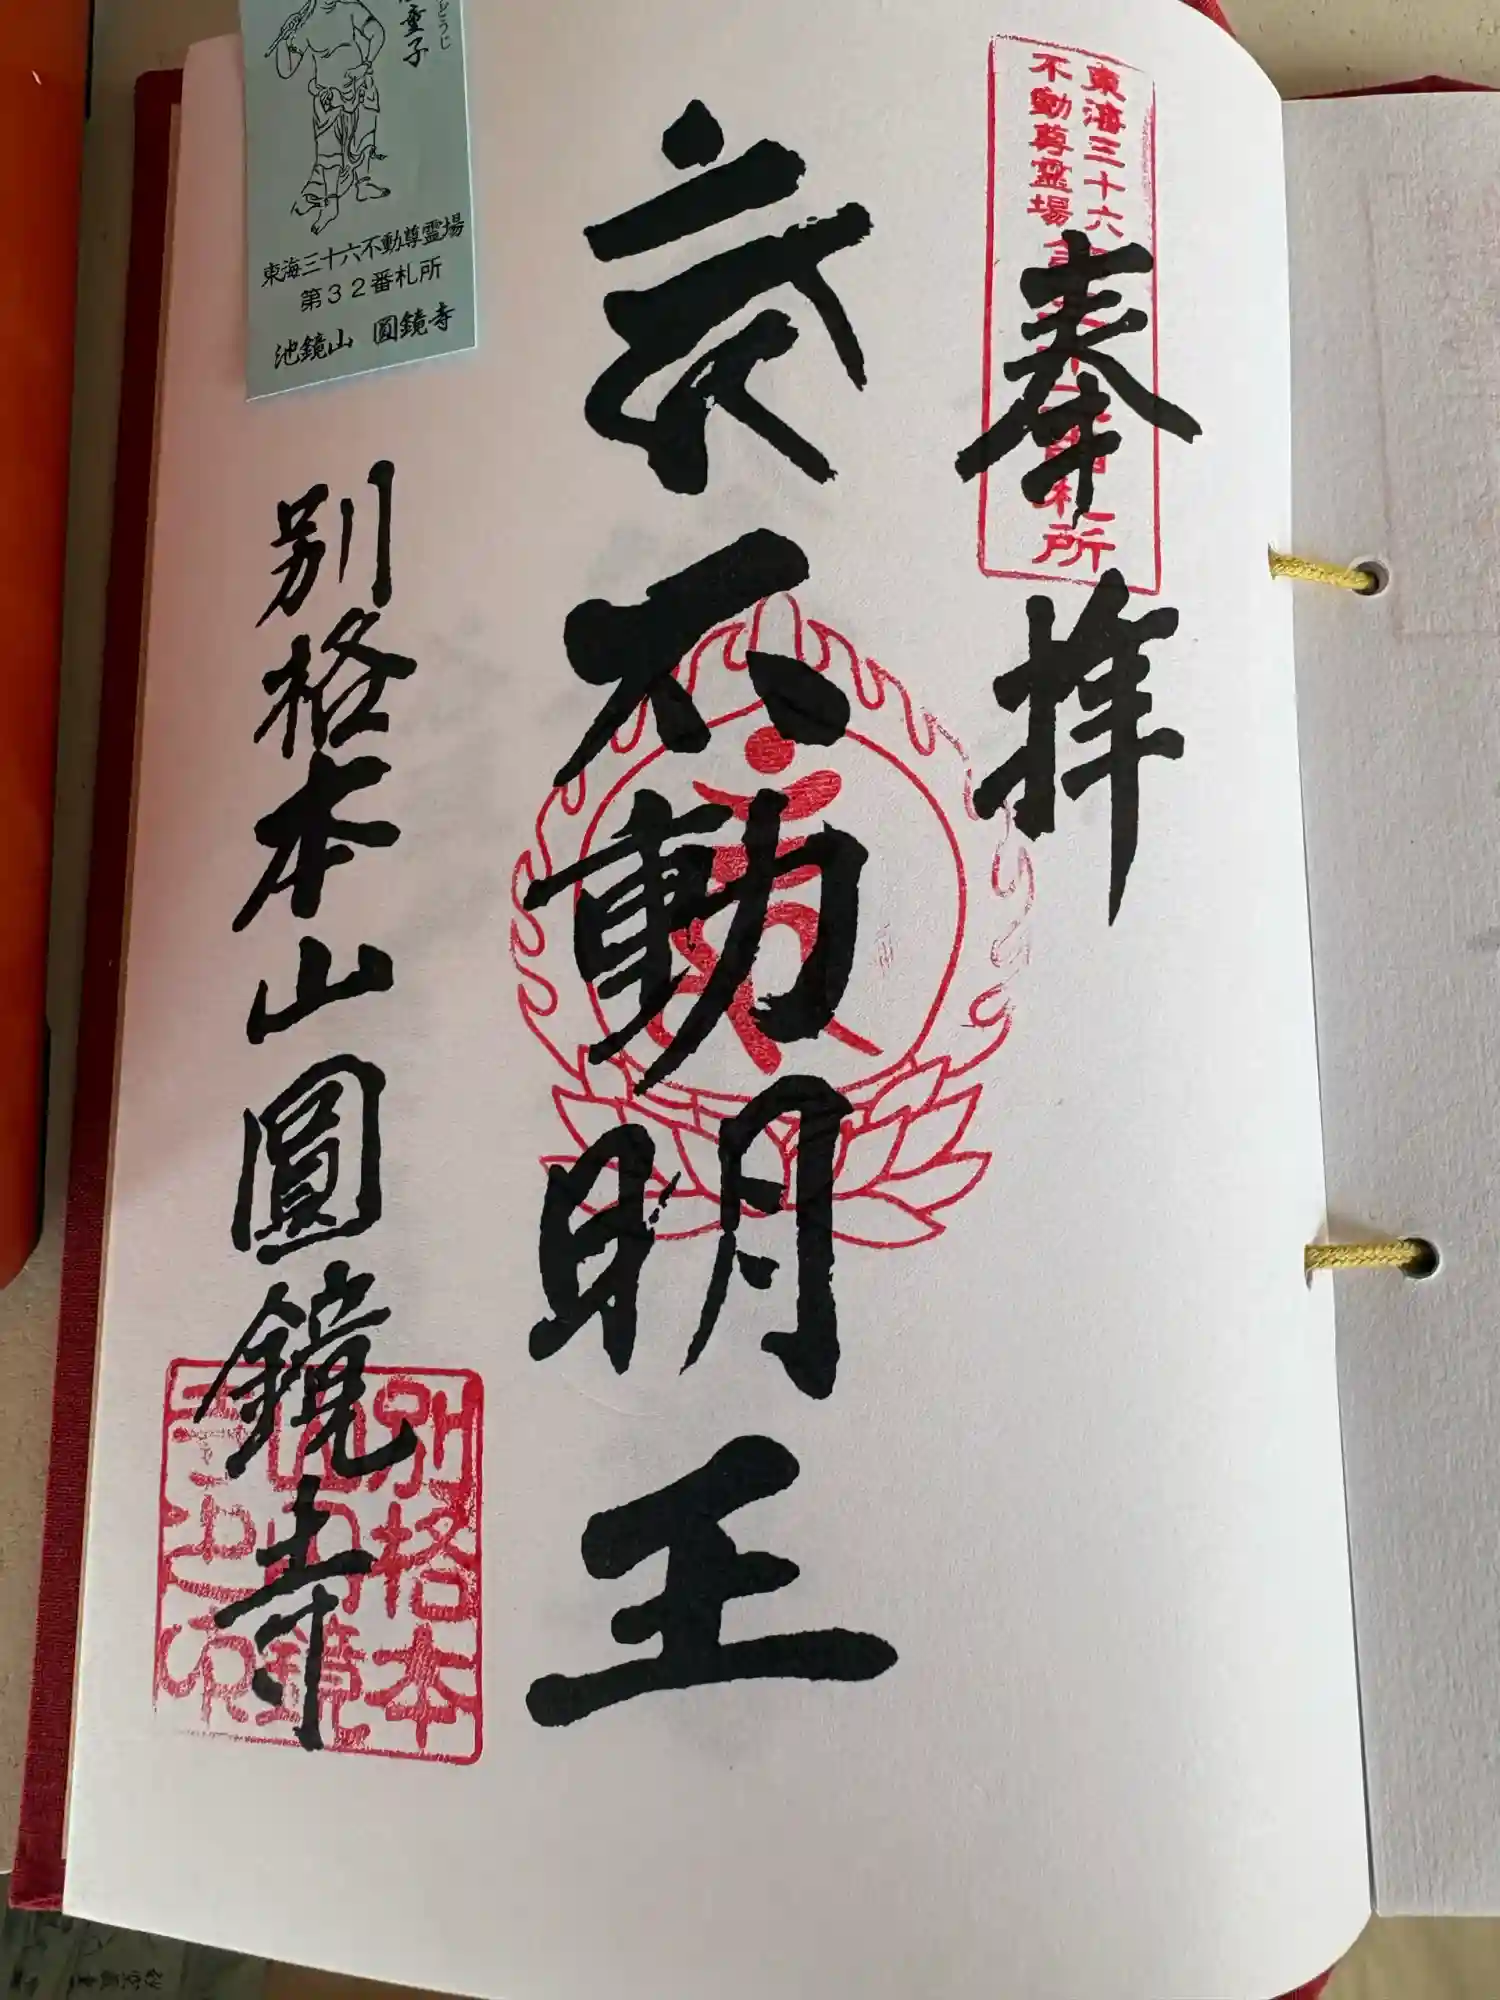 東海三十六
不動尊霊場
札所
奉拝
不動明王
別格本山圓鏡寺
別格本
山圓鏡
寺之印
童子
どうじ
東海三十六不動尊霊場
第32番札所
池鏡山 圓鏡寺